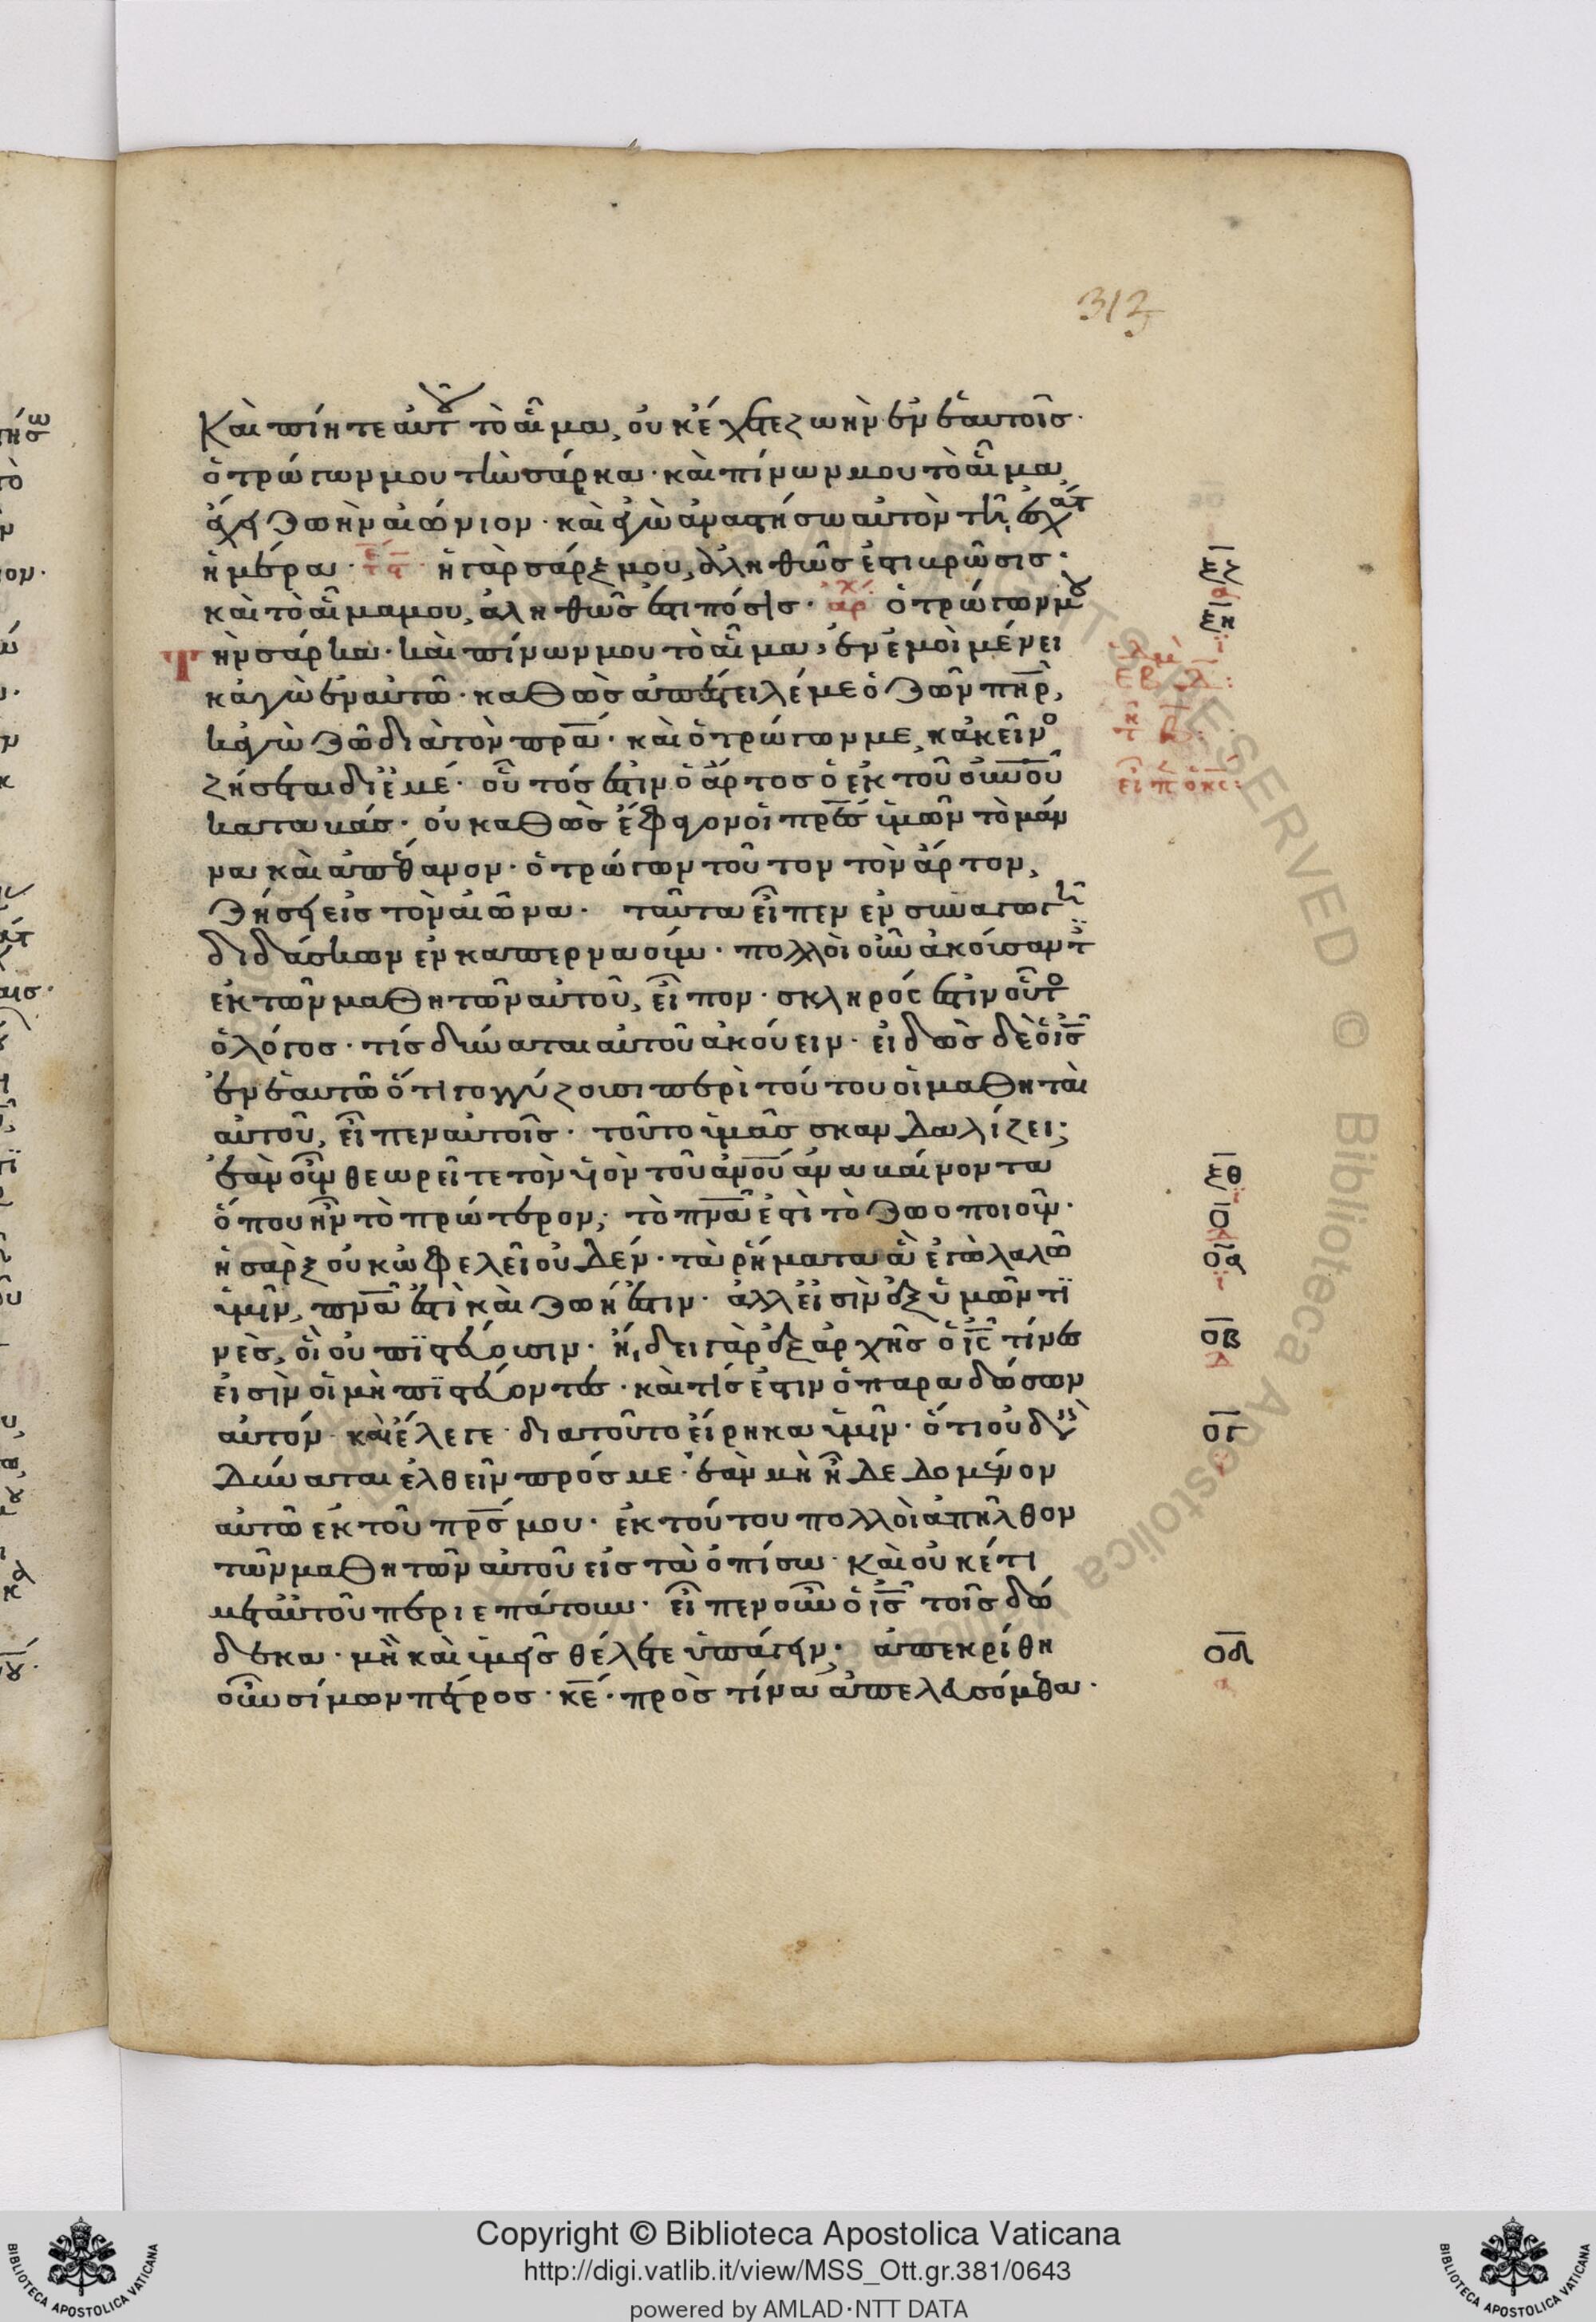 313
Καὶ πίητε αὐτοῦ τὸ αἷμα, οὐκ ἔχετε ζωὴν ἐν ἑαυτοῖς·
ὁ τρώγων μου τὴν σάρκα· καὶ πίνων μου τὸ αἷμα,
ἔχει ζωὴν αἰώνιον· καὶ ἐγὼ ἀναστήσω αὐτὸν τῇ ἐσχάτ
ἡμέρα· τε ἡ γὰρ σάρξ μου, ἀληθῶς ἐστι βρῶσις·
καὶ τὸ αἷμα μου, ἀληθῶς ἐστι πόσις· ἀρχ ὁ τρώγων μου
τὴν σάρκα· καὶ πίνων μου τὸ αἷμα, ἐν ἐμοὶ μένει
κἀγὼ ἐν αὐτῶ· καθὼς ἀπέστειλέ με ὁ ζῶν πηρ,
κἀγὼ ζῶ διὰ τὸν πρα· καὶ ὁ τρώγων με, κἀκεῖνο
ζήσεται δι' ἐμέ· οὗτός ἐστιν ὁ ἄρτος ὁ ἐκ τοῦ οὐνοῦ
καταβάς· οὐ καθὼς ἔφαγον οἱ πρες ὑμῶν τὸ μάν
να καὶ ἀπέθανον· ὁ τρώγων τοῦτον τὸν ἄρτον,
ζήσει εἰς τὸν αἰῶνα· ταῦτα εἶπεν ἐν συναγωγῇ
διδάσκων ἐν καπερναούμ· πολλοὶ οὖν ἀκούσαντ
ἐκ τῶν μαθητῶν αὐτοῦ, εἶπον· σκληρός ἐστιν οὗτο
ὁ λόγος· τίς δύναται αὐτοῦ ἀκούειν· εἰδὼς δὲ ὁ ις
ἐν ἑαυτῶ ὅτι γογγύζουσι περὶ τούτου οἱ μαθηταὶ
αὐτοῦ, εἶπεν αὐτοῖς· τοῦτο ὑμᾶς σκανδαλίζει;
ἐὰν οὖν θεωρεῖτε τὸν υἱὸν τοῦ ανου αναβαίνοντα
ὅπου ἦν τὸ πρώτερον; τὸ πνα ἐστὶ τὸ ζωοποιοῦν·
ἡ σὰρξ οὐκ ὠφελεῖ οὐδέν· τὰ ρήματα ἃ ἐγὼ λαλῶ
ὑμῖν, πνα ἐστὶ καὶ ζωή ἐστιν· ἀλλ' εἰσὶν ἐξ ὑμῶν τϊ
νὲς, οἳ οὐ πϊστεύουσιν· ἤδει γὰρ ἐξ ἀρχῆς ὁ ις τίνες
εἰσὶν οἱ μὴ πϊστεύοντες· καὶ τίς ἐστιν ὁ παραδώσων
αὐτόν· καὶ ἔλεγε· διατοῦτο εἴρηκα ὑμῖν· ὅτι οὐδεὶς
δύναται ἐλθεῖν πρός με· ἐὰν μὴ ἦ δεδομένον
αὐτῶ ἐκ τοῦ πρς μου· ἐκ τούτου πολλοὶ ἀπῆλθον
τῶν μαθητῶν αὐτοῦ εἰς τὰ ὀπίσω· καὶ οὐκέτι
μετ' αὐτοῦ περιεπάτουν· εἶπεν οὖν ὁ ις τοῖς δώ
δεκα· μὴ καὶ ὑμεῖς θέλετε ὑπάγειν; ἀπεκρίθη
οὖν σίμων πέτρος· κε· πρὸς τίνα ἀπελευσόμεθα·
ξζ
ξη
ξθ
ο
οα
οβ
ογ
οδ
Copyright © Biblioteca Apostolica Vaticana
http://digi.vatlib.it/view/MSS_Ott.gr.381/0643
powered by AMLAD·NTT DATA